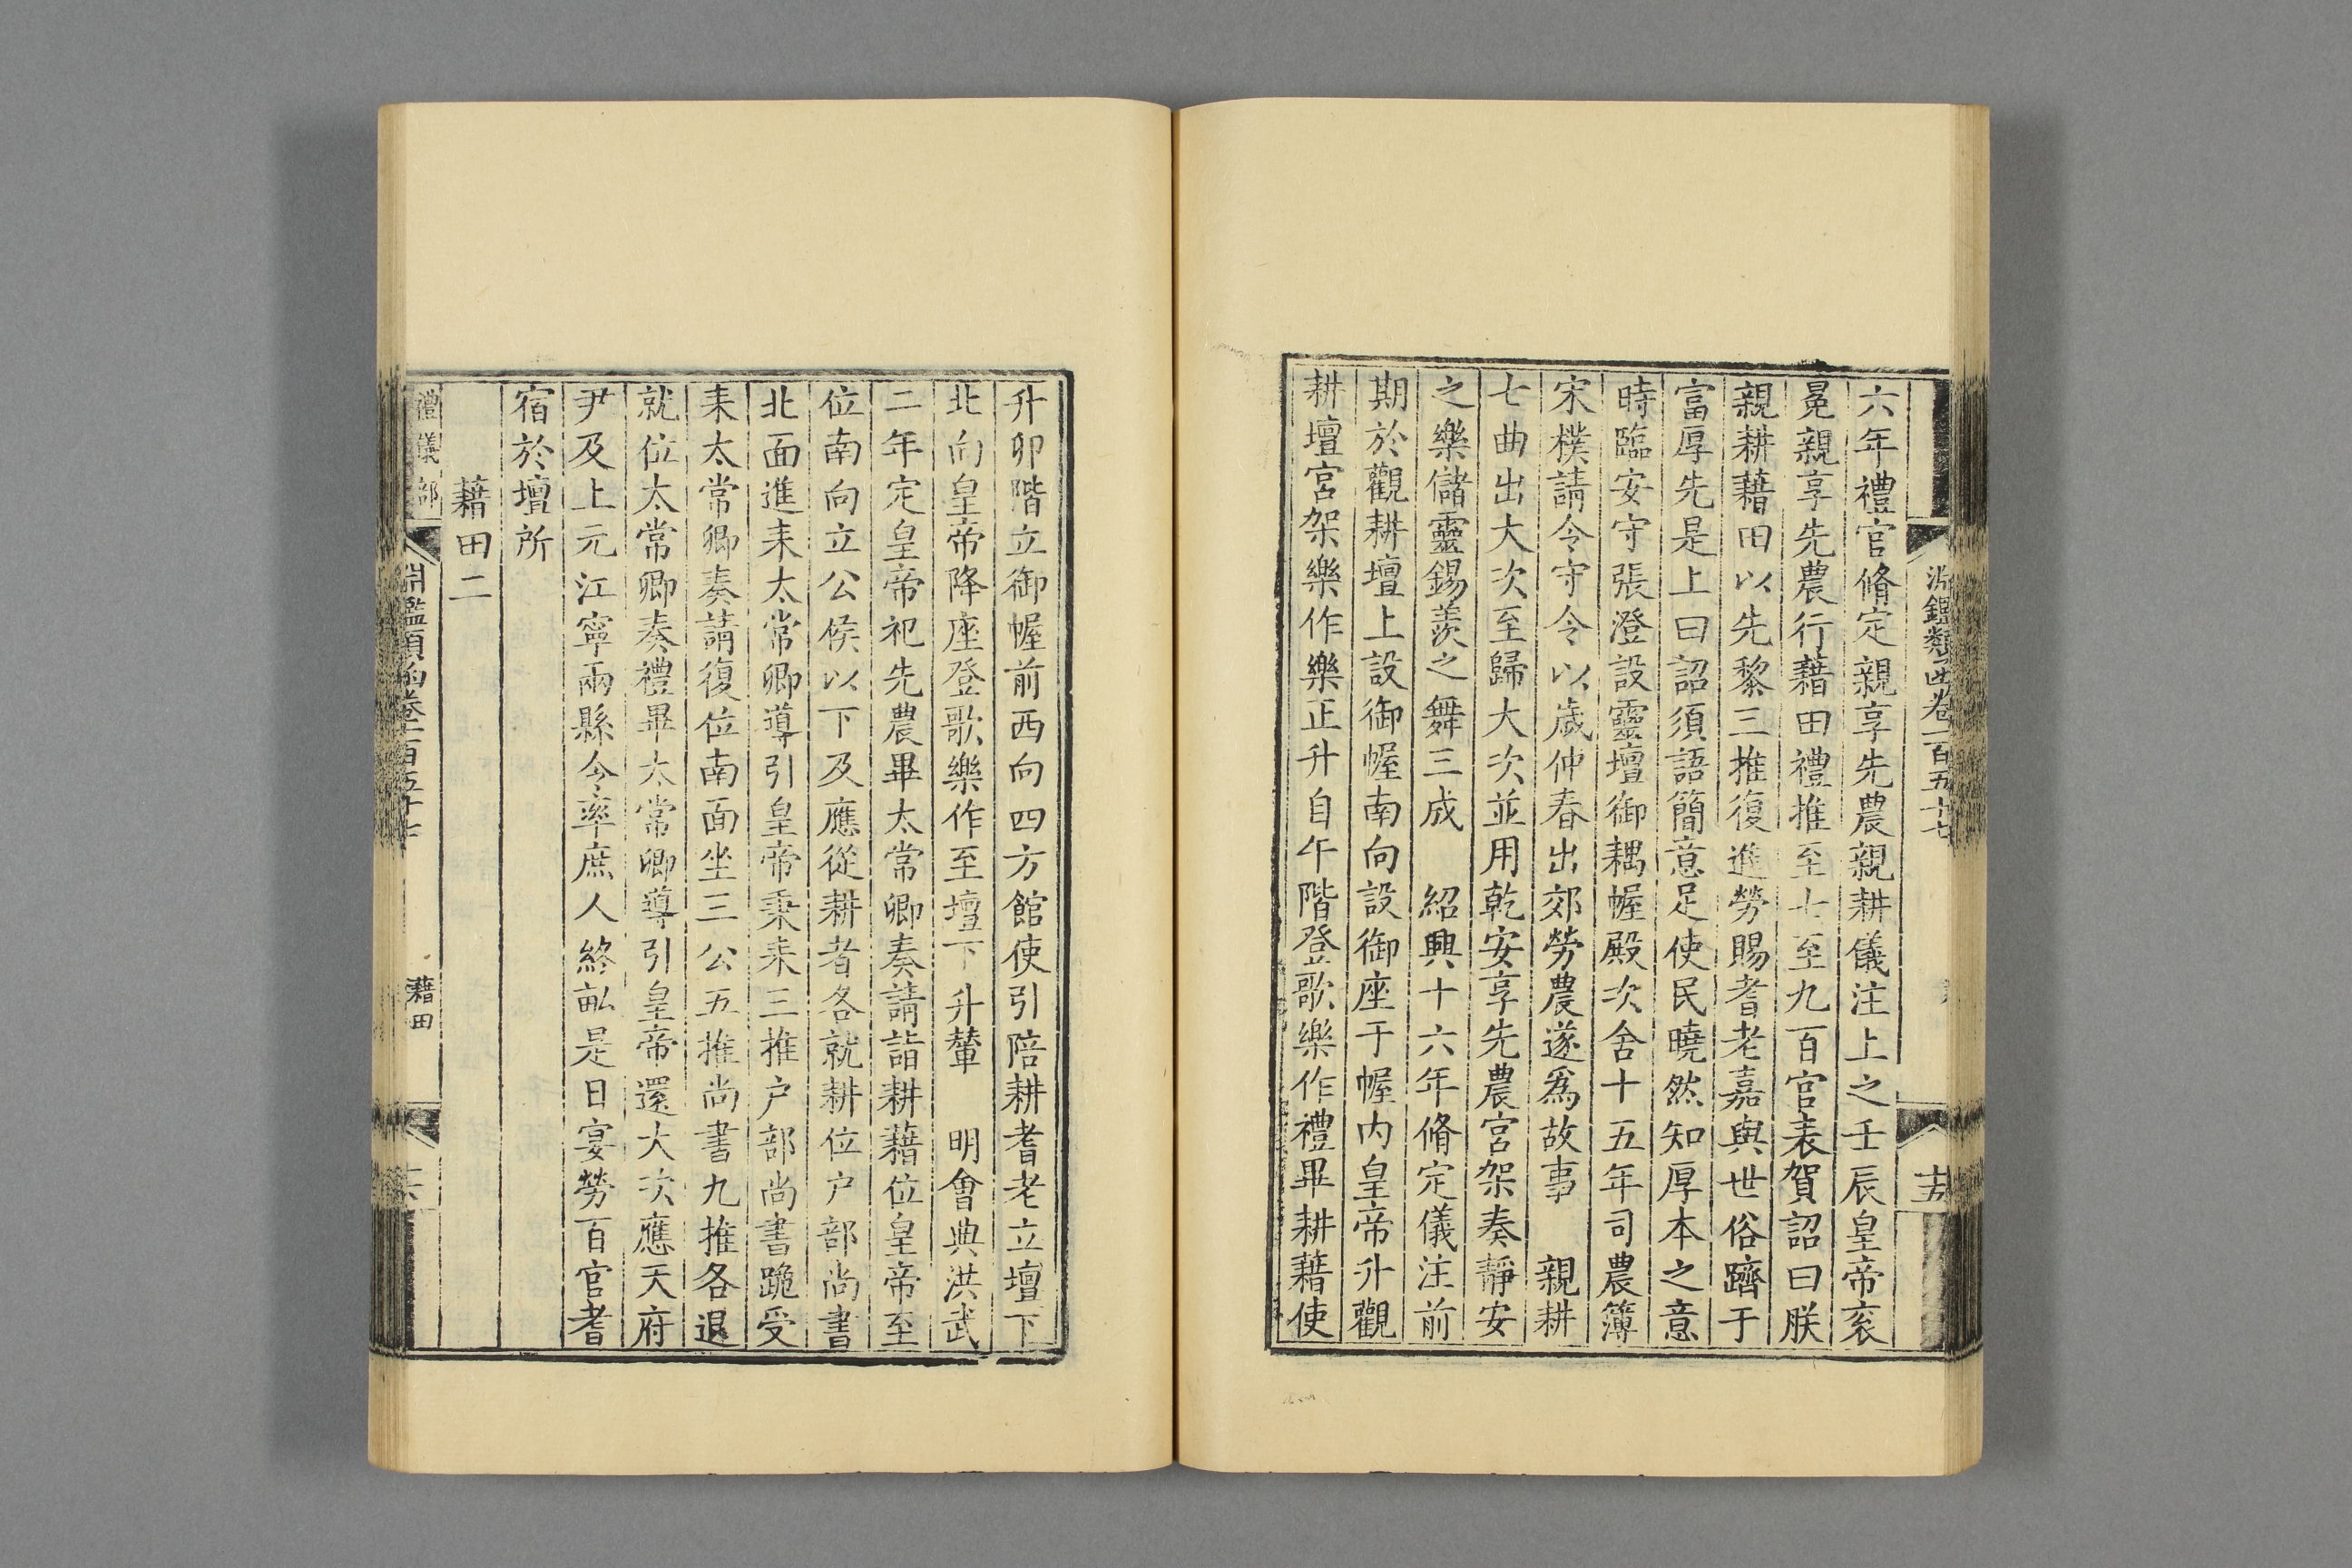 淵鑑類函卷一百五十七
十五
六年禮官脩定親享先農親耕儀注上之壬辰皇帝衮
冕親享先農行藉田禮推至七至九百官表賀詔曰朕
親耕藉田以先黎三推復進勞賜耆老嘉與世俗躋于
富厚先是上曰詔須語簡意足使民曉然知厚本之意
時臨安守張澄設靈壇御耦幄殿次舍十五年司農簿
宋樸請令守令以歲仲春出郊勞農遂爲故事　親耕
七曲出大次至歸大次並用乾安享先農宮架奏靜安
之樂儲靈錫羨之舞三成　紹興十六年脩定儀注前
期於觀耕壇上設御幄南向設御座于幄內皇帝升觀
耕壇宮架樂作樂正升自午階登歌樂作禮畢耕藉使
升卯階立御幄前西向四方館使引陪耕耆老立壇下
北向皇帝降座登歌樂作至壇下升輦　明會典洪武
二年定皇帝祀先農畢太常卿奏請詣耕藉位皇帝至
位南向立公侯以下及應從耕者各就耕位户部尚書
北面進耒太常卿導引皇帝秉耒三推户部尚書跪受
耒太常卿奏請復位南面坐三公五推尚書九推各退
就位太常卿奏禮畢太常卿導引皇帝還大次應天府
尹及上元江寧兩縣令率庶人終畝是日宴勞百官耆
宿於壇所
藉田二
禮儀部
淵鑑類函卷一百五十七
藉田
十六